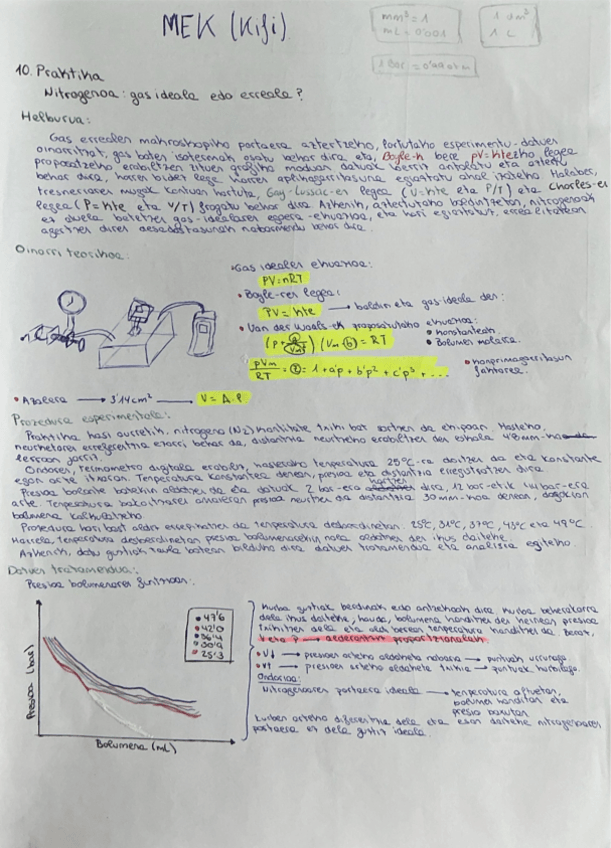 MEK (Kifi)
mm³ = 1
mL = 0'001
1 dm³
1 L
1 Bar = 0'99 atm
10. Praktika
Nitrogenoa: gas ideala edo erreala?
Helburua:
Gas errealen makroskopiko portaera aztertzeko, lortutako esperimentu-datuen
oinarritzat, gas baten isotermak osatu behar dira eta, Boyle-k bere pV=ktezko legea
proposatzeko erabiltzen zituen grafiko moduan datuak berriz antolatu eta aztertu
behar dira, horren bidez lege horren aplikagarritasuna egiaztatu ahal izateko. Halaber,
tresneriaren mugak kontuan hartuta, Gay-Lussac-en legea (V=kte eta P/T) eta Charles-en
legea (P=kte eta V/T) frogatu behar dira. Azkenik, aztertutako baldintzetan, nitrogenoak
ez duela betetzen gas-idealaren egoera-ekuazioa, eta hori egiaztatuz, errealitatean
agertzen diren desadostasunak nabarmendu behar dira.
Oinarri teorikoa:
• Gas idealen ekuazioa:
PV=nRT
• Boyle-ren legea:
PV = kte → baldin eta gas-ideala den:
• Van der Waals-ek proposatutako ekuazioa:
(P + a/Vm²) (Vm - b) = RT
• konstanteak.
• Bolumen molarra.
pVm/RT = Z = 1 + a'p + b'p² + c'p³ + ...
• konprimagarritasun
faktorea.
• Azalera → 3'14 cm² → V = A·l
Prozedura esperimentala:
Praktika hasi aurretik, nitrogeno (N₂) kantitate txiki bat sartzen da ekipoan. Hasteko,
neurketaren erreferentzia ezarri behar da, distantzia neurtzeko erabiltzen den eskala 48 mm-
zeroan jarriz.
Ondoren, termometro digitala erabiliz, hasierako tenperatura 25ºC-ra doitzen da eta konstante
egon arte itxaron. Tenperatura konstantea denean, presioa eta distantzia erregistratzen dira.
Presioa bolante batekin aldatzen da eta datuak 2 bar-era hartzen dira, 12 bar-etik 14 bar-era
arte. Tenperatura bakoitzaren amaieran presioa neurtzen da distantzia 30 mm-koa denean, dagokion
bolumena kalkulatzeko.
Prozedura hori bost aldiz errepikatzen da tenperatura desberdinetan: 25ºC, 31ºC, 37ºC, 43ºC eta 49ºC.
Horrela, tenperatura desberdinetan presioa bolumenarekin nola aldatzen den ikus daiteke.
Azkenik, datu guztiak taula batean bilduko dira datuen tratamendua eta analisia egiteko.
Datuen tratamendua:
Presioa bolumenaren funtzioan:
Presioa (bar)
• 47'6
• 42'0
• 36'4
• 30'9
• 25'3
Bolumena (mL)
Kurba guztiak berdinak edo antzekoak dira. Kurba beherakorra
dela ikus daiteke, hau da, bolumena handitzen den heinean presioa
txikitzen dela eta aldi berean tenperatura handitzen da beraz,
V eta P → alderantziz proportzionalak.
• V↓ → presioen arteko aldaketa nabaria → puntuak urrunago.
• V↑ → presioen arteko aldaketa txikia → puntuak hurbilago.
Ondorioa:
Nitrogenoaren portaera ideala → tenperatura altuetan,
bolumen handitan eta
presio baxutan.
Kurben arteko diferentzia dela eta esan daiteke nitrogenoaren
portaera ez dela guztiz ideala.